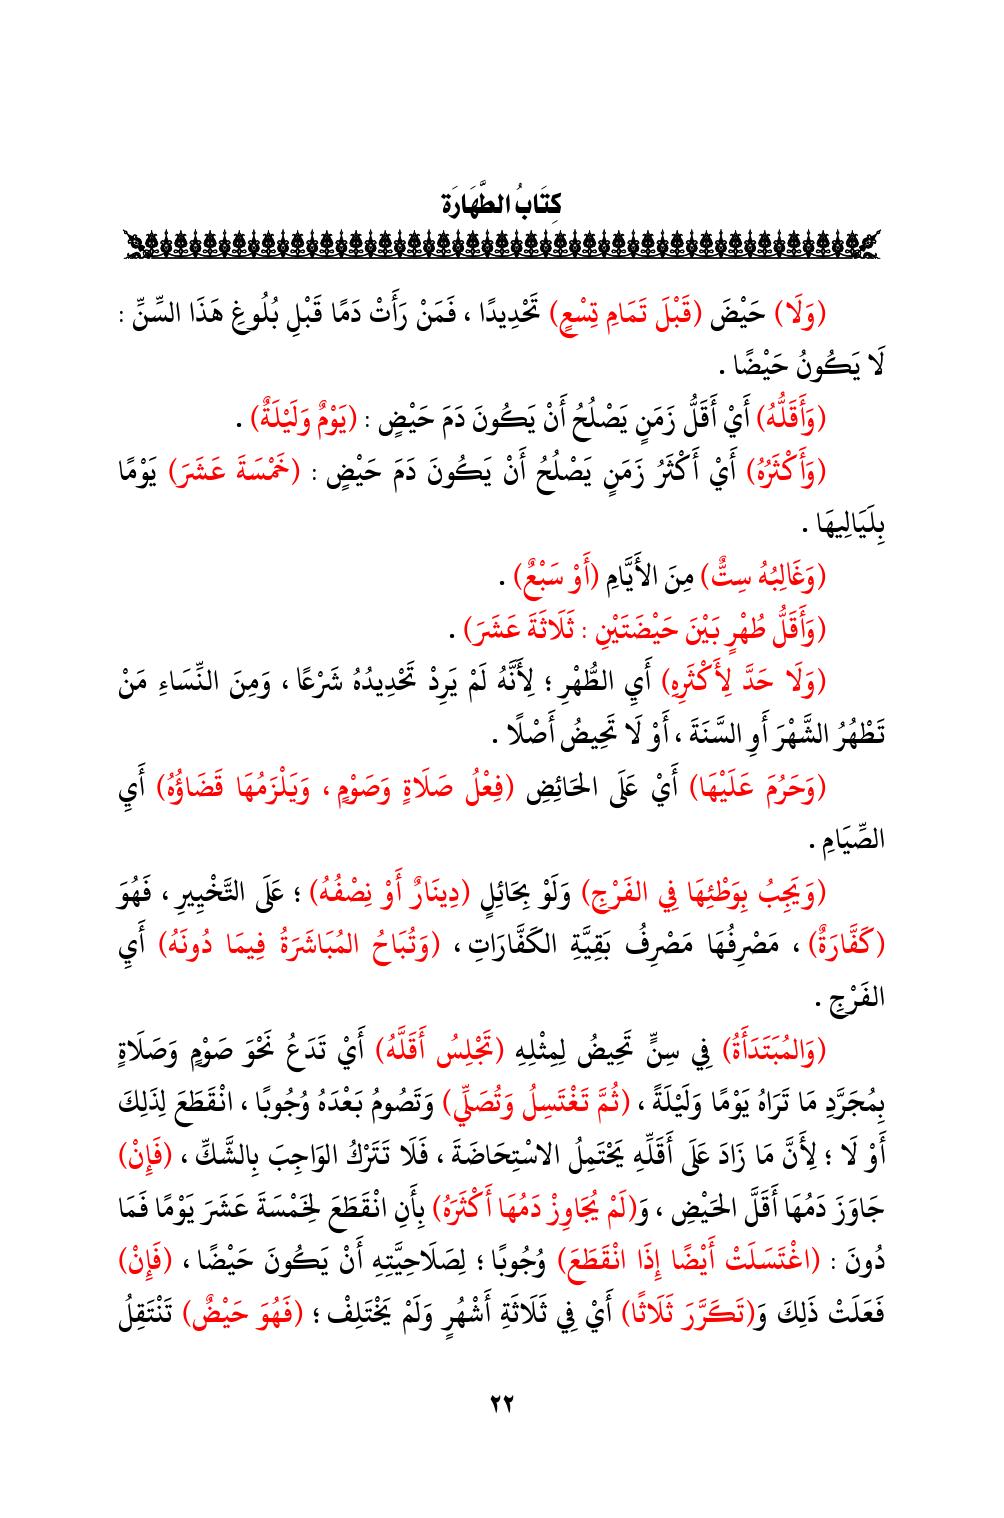 كِتَابُ الطَّهَارَة
(وَلَا) حَيْضَ (قَبْلَ تَمَامِ تِسْعٍ) تَحْدِيدًا ، فَمَنْ رَأَتْ دَمًا قَبْلِ بُلُوغِ هَذَا السِّنِّ :
لَا يَكُونُ حَيْضًا .
(وَأَقَلُّهُ) أَيْ أَقَلُّ زَمَنٍ يَصْلُحُ أَنْ يَكُونَ دَمَ حَيْضٍ : (يَوْمٌ وَلَيْلَةٌ) .
(وَأَكْثَرُهُ) أَيْ أَكْثَرُ زَمَنٍ يَصْلُحُ أَنْ يَكُونَ دَمَ حَيْضٍ : (خَمْسَةَ عَشَرَ) يَوْمًا
بِلَيَالِيهَا .
(وَغَالِبُهُ سِتٌّ) مِنَ الأَيَّامِ (أَوْ سَبْعٌ) .
(وَأَقَلُّ طُهْرٍ بَيْنَ حَيْضَتَيْنِ : ثَلَاثَةَ عَشَرَ) .
(وَلَا حَدَّ لِأَكْثَرِهِ) أَيِ الطُّهْرِ ؛ لِأَنَّهُ لَمْ يَرِدْ تَحْدِيدُهُ شَرْعًا ، وَمِنَ النِّسَاءِ مَنْ
تَطْهُرُ الشَّهْرَ أَوِ السَّنَةَ ، أَوْ لَا تَحِيضُ أَصْلًا .
(وَحَرُمَ عَلَيْهَا) أَيْ عَلَى الحَائِضِ (فِعْلُ صَلَاةٍ وَصَوْمٍ ، وَيَلْزَمُهَا قَضَاؤُهُ) أَيِ
الصِّيَامِ .
(وَيَجِبُ بِوَطْئِهَا فِي الفَرْجِ) وَلَوْ بِحَائِلٍ (دِينَارٌ أَوْ نِصْفُهُ) ؛ عَلَى التَّخْيِيرِ ، فَهُوَ
(كَفَّارَةٌ) ، مَصْرِفُهَا مَصْرِفُ بَقِيَّةِ الكَفَّارَاتِ ، (وَتُبَاحُ المُبَاشَرَةُ فِيمَا دُونَهُ) أَيِ
الفَرْجِ .
(وَالمُبَتَدَأَةُ) فِي سِنٍّ تَحِيضُ لِمِثْلِهِ (تَجْلِسُ أَقَلَّهُ) أَيْ تَدَعُ نَحْوَ صَوْمٍ وَصَلَاةٍ
بِمُجَرَّدِ مَا تَرَاهُ يَوْمًا وَلَيْلَةً ، (ثُمَّ تَغْتَسِلُ وَتُصَلِّي) وَتَصُومُ بَعْدَهُ وُجُوبًا ، انْقَطَعَ لِذَلِكَ
أَوْ لَا ؛ لِأَنَّ مَا زَادَ عَلَى أَقَلِّهِ يَحْتَمِلُ الاسْتِحَاضَةَ ، فَلَا تَتَرْكُ الوَاجِبَ بِالشَّكِّ ، (فَإِنْ)
جَاوَزَ دَمُهَا أَقَلَّ الحَيْضِ ، وَ(لَمْ يُجَاوِزْ دَمُهَا أَكْثَرَهُ) بِأَنِ انْقَطَعَ لِخَمْسَةَ عَشَرَ يَوْمًا فَمَا
دُونَ : (اغْتَسَلَتْ أَيْضًا إِذَا انْقَطَعَ) وُجُوبًا ؛ لِصَلَاحِيَّتِهِ أَنْ يَكُونَ حَيْضًا ، (فَإِنْ)
فَعَلَتْ ذَلِكَ وَ(تَكَرَّرَ ثَلَاثًا) أَيْ فِي ثَلَاثَةِ أَشْهُرٍ وَلَمْ يَخْتَلِفْ ؛ (فَهُوَ حَيْضٌ) تَنْتَقِلُ
٢٢